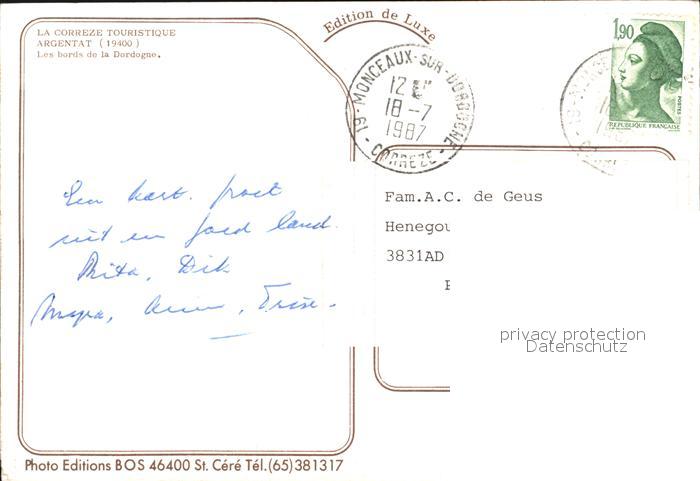 LA CORREZE TOURISTIQUE
ARGENTAT (19400)
Les bords de la Dordogne.
Edition de Luxe
19-MONCEAUX-SUR-DORDOGNE-
12 H
18-7
1987
CORREZE
1,90
POSTES
REPUBLIQUE FRANÇAISE
Een hart. groet
uit een goed land.
Rita, Dik
Fam.A.C. de Geus
Henegou
3831AD
privacy protection
Datenschutz
Photo Editions BOS 46400 St. Céré Tél.(65)381317